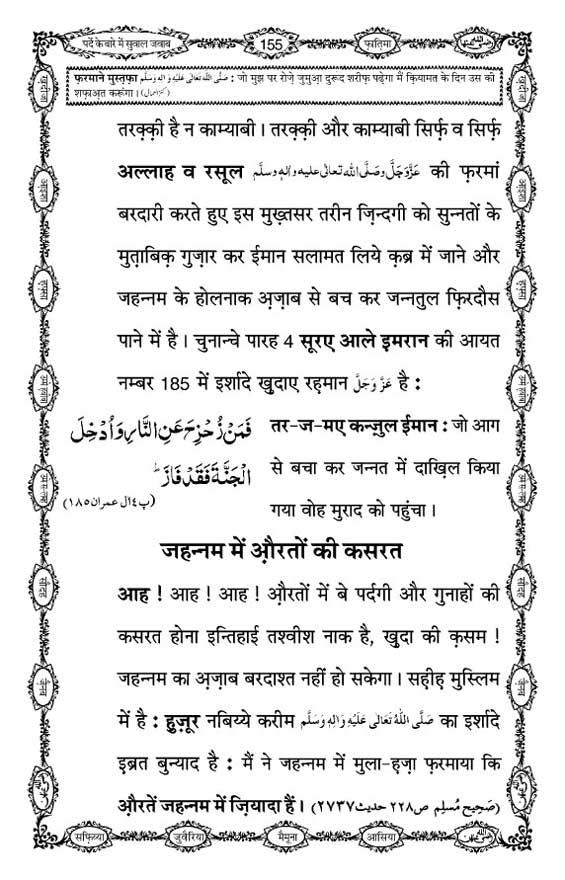 पर्दे के बारे में सुवाल जवाब
155
फ़ातिमा
फ़रमाने मुस्तफ़ा صَلَّی اللہ تَعَالٰی عَلَیْہِ وَاٰلِہٖ وَسَلَّم : जो मुझ पर रोज़े जुमुआ़ दुरूद शरीफ़ पढ़ेगा मैं क़ियामत के दिन उस की
शफ़ाअ़त करूंगा। (کنزالعمال)
तरक़्क़ी है न काम्याबी। तरक़्क़ी और काम्याबी सिर्फ़ व सिर्फ़
अल्लाह व रसूल عَزَّوَجَلَّ وصَلَّی اللہ تعالٰی علیہ واٰلہٖ وسلَّم की फ़रमां
बरदारी करते हुए इस मुख़्तसर तरीन ज़िन्दगी को सुन्नतों के
मुता़बिक़ गुज़ार कर ईमान सलामत लिये क़ब्र में जाने और
जहन्नम के होलनाक अ़ज़ाब से बच कर जन्नतुल फ़िरदौस
पाने में है। चुनान्चे पारह 4 सूरए आले इमरान की आयत
नम्बर 185 में इर्शादे खुदाए रह़मान عَزَّوَجَلَّ है :
فَمَنْ زُحْزِحَ عَنِ النَّارِ وَاُدْخِلَ
الْجَنَّةَ فَقَدْ فَازَ ؕ
(پ٤ اٰل عمران ١٨٥)
तर-ज-मए कन्ज़ुल ईमान : जो आग
से बचा कर जन्नत में दाख़िल किया
गया वोह मुराद को पहुंचा।
जहन्नम में औ़रतों की कसरत
आह ! आह ! आह ! औ़रतों में बे पर्दगी और गुनाहों की
कसरत होना इन्तिहाई तश्वीश नाक है, खुदा की क़सम !
जहन्नम का अ़ज़ाब बरदाश्त नहीं हो सकेगा। सह़ीह़ मुस्लिम
में है : हुज़ूर नबिय्ये करीम صَلَّى اللّٰهُ تَعَالٰى عَلَيْهِ وَاٰلِهٖ وَسَلَّم का इर्शादे
इ़ब्रत बुन्याद है : मैं ने जहन्नम में मुला-ह़ज़ा फ़रमाया कि
औ़रतें जहन्नम में ज़ियादा हैं। (صَحِیح مُسلِم ص٢٢٨ حديث ٢٧٣٧)
सफ़िय्या
जुवैरिया
मैमूना
आसिया